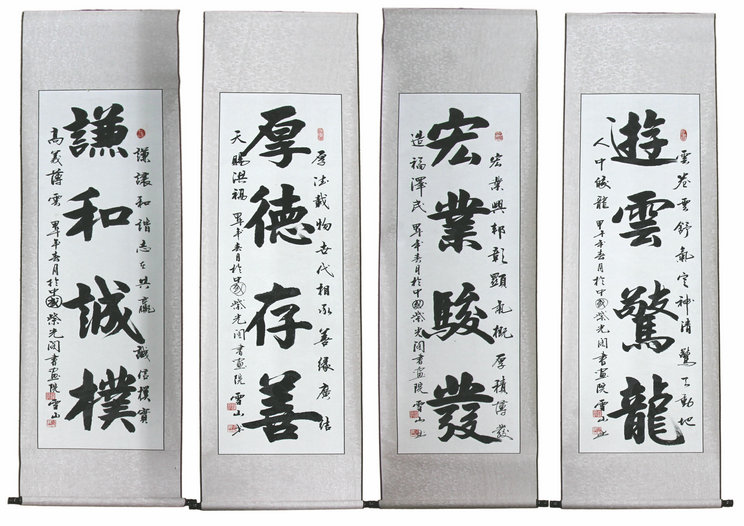 雲卷雲舒氣定神清驚天動地
遊雲驚龍
人中蛟龍 甲午年春月於中國紫光閣書畫院 雪山
宏業興邦彰顯氣概厚積薄發
宏業駿發
造福澤民 甲午年春月於中國紫光閣書畫院 雪山
厚德載物世代相承善緣廣結
厚德存善
天賜洪福 甲午年春月於中國紫光閣書畫院 雪山
謙讓和諧共贏誠信樸實
謙和誠樸
高義薄雲 甲午年春月於中國紫光閣書畫院 雪山